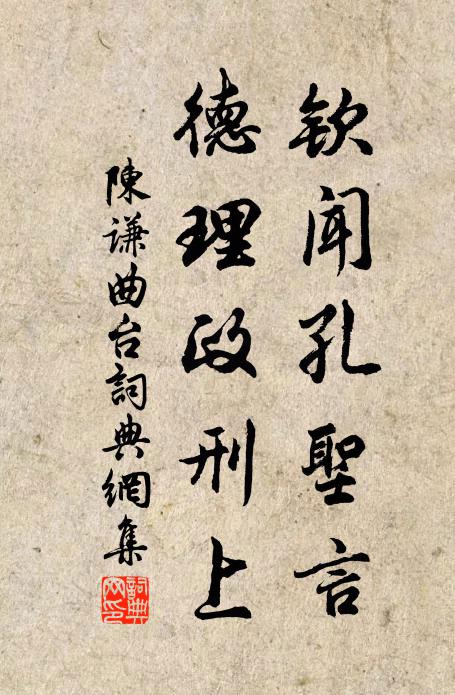 欽聞孔聖言
德理政刑上
陳謙曲台詞典網集
詞典
网印